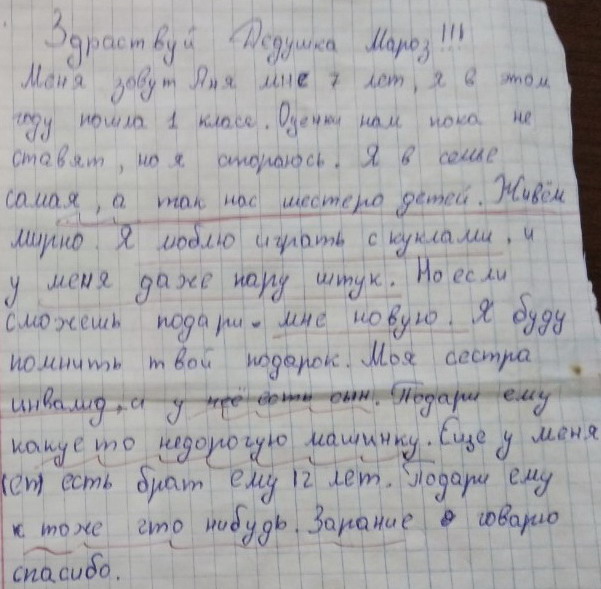 Здраствуй Дедушка Мароз!!!
Меня зовут Аня мне 7 лет, я в этом
году пошла 1 класс. Оценки нам пока не
ставят, но я стораюсь. Я в семье
самая, а так нас шестеро детей. Живём
мирно. Я люблю играть с куклами, и
у меня даже пару штук. Но если
сможешь подари мне новую. Я буду
помнить твой подарок. Моя сестра
инвалид, и у неё есть сын. Подари ему
какуе то недорогую машинку. Еще у меня
есть брат ему 12 лет. Подари ему
тоже что нибудь. Зарание говарю
спасибо.